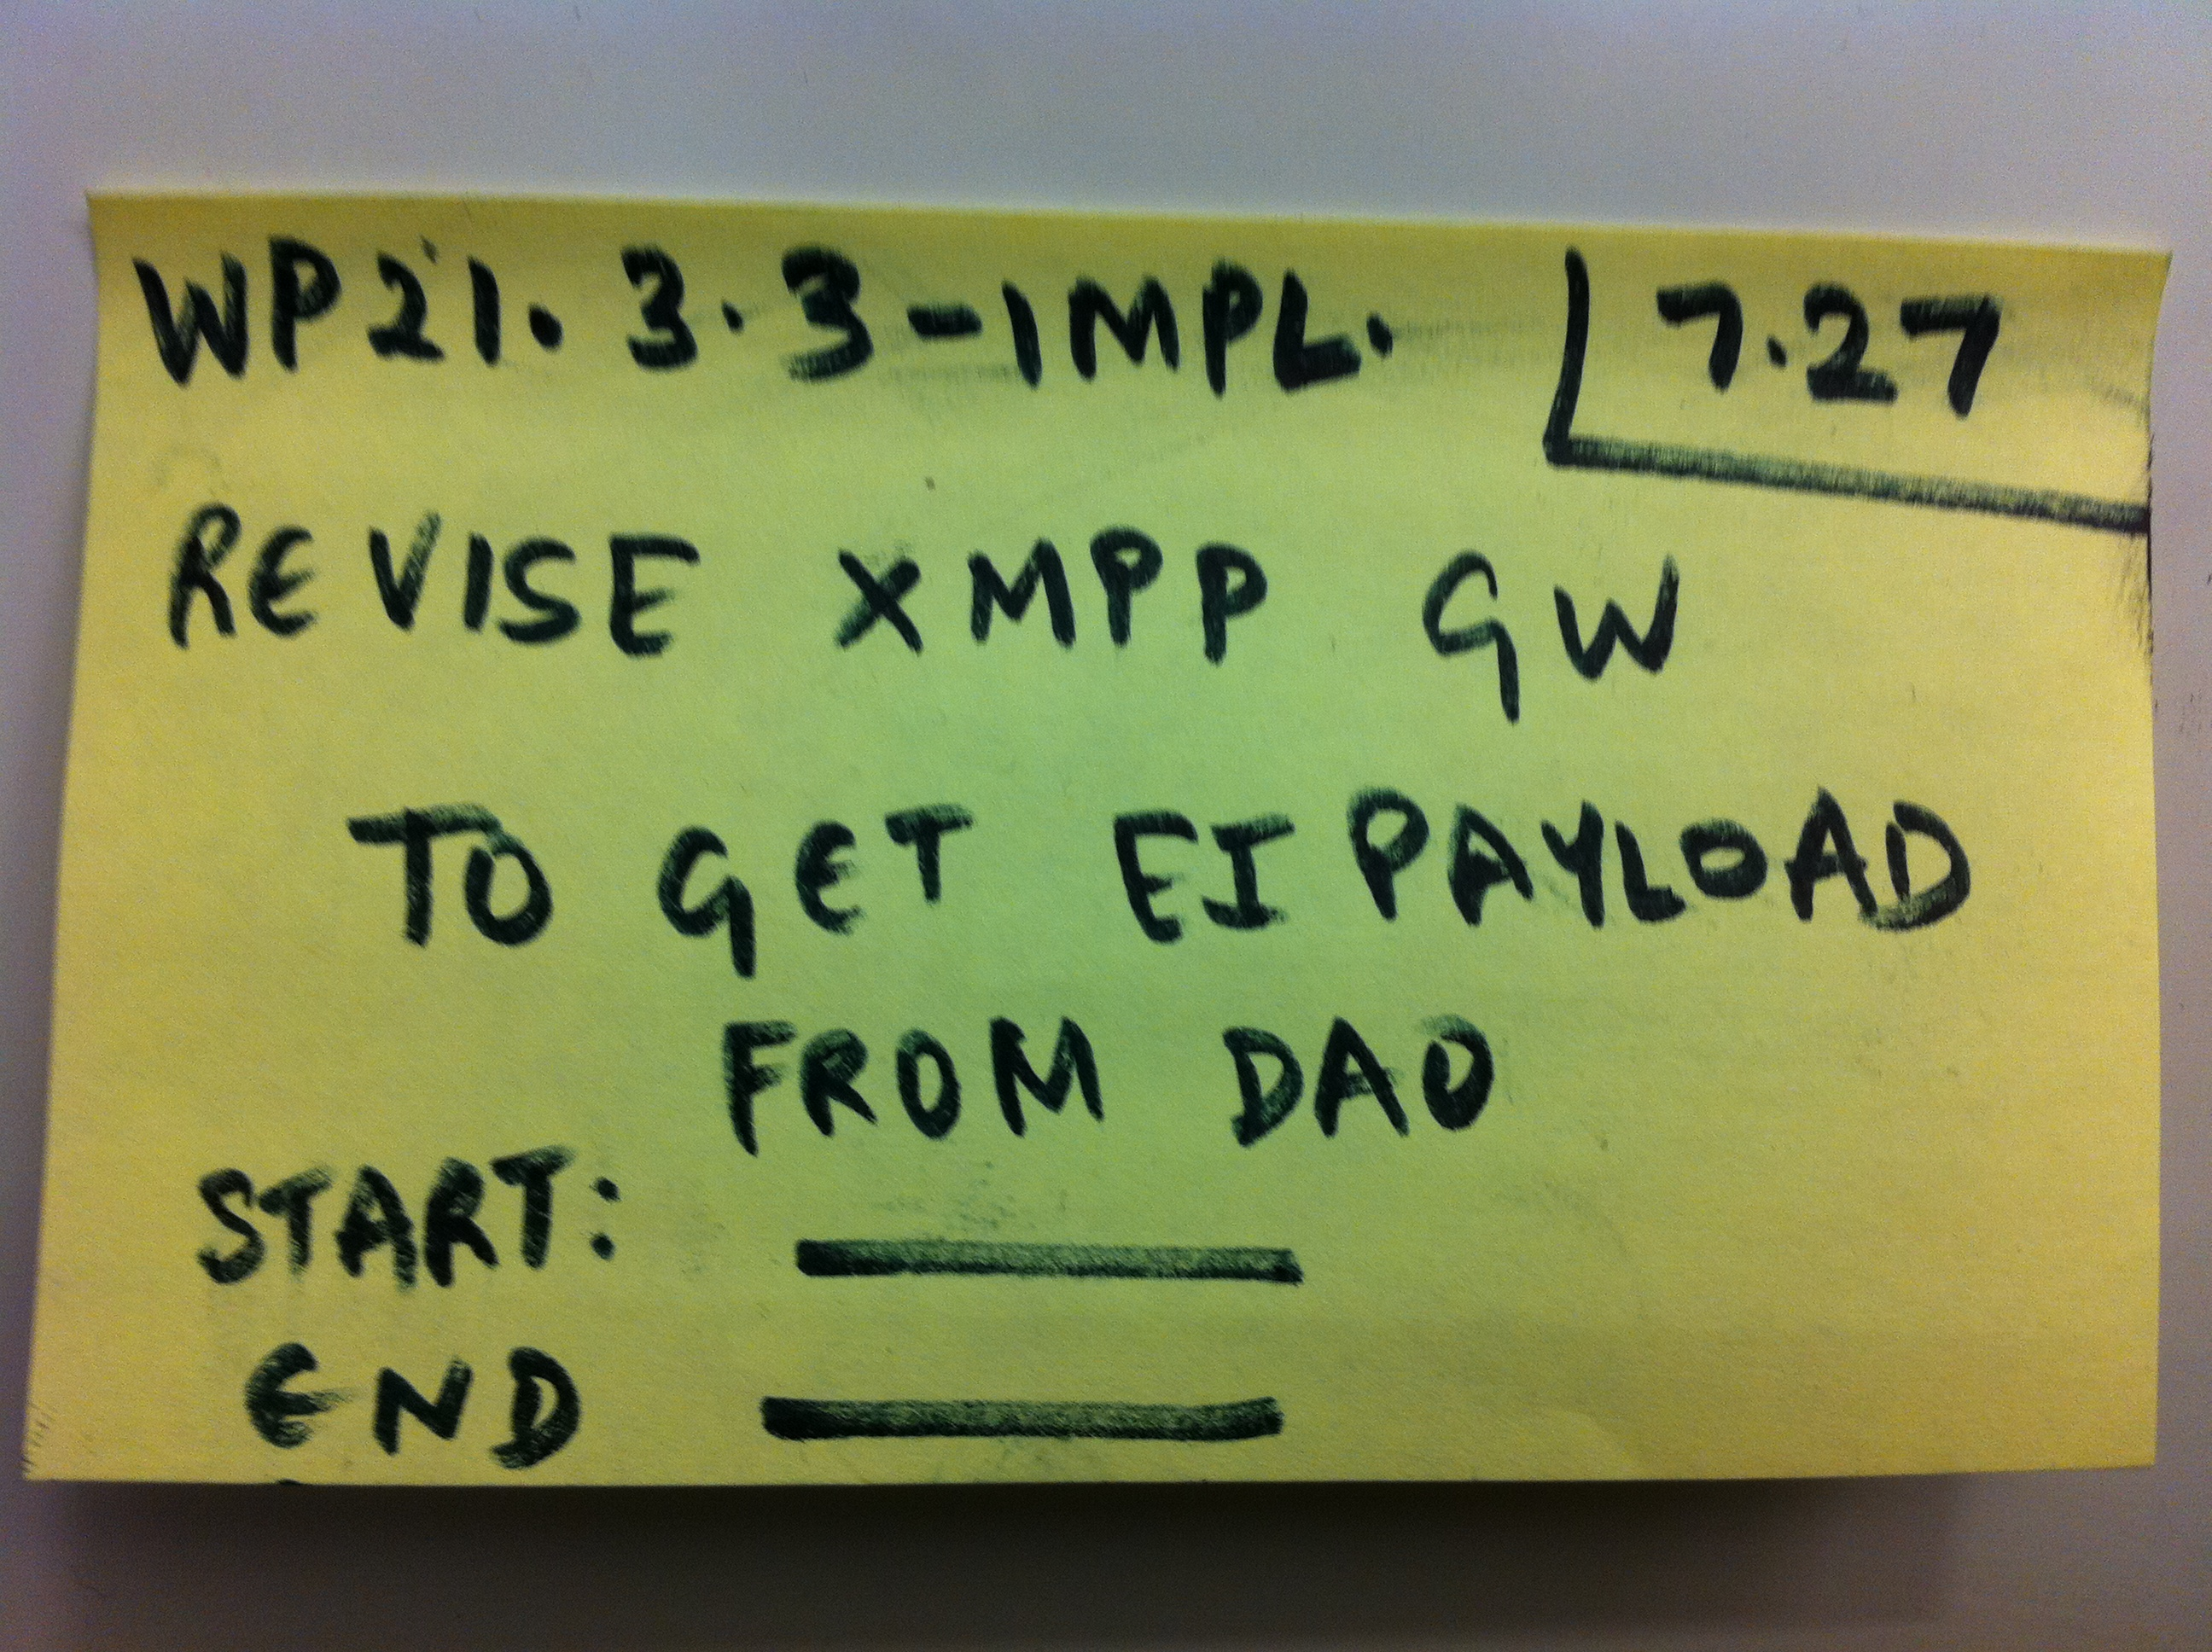 WP21.3.3-IMPL. 7.27
REVISE XMPP GW
TO GET EIPAYLOAD
FROM DAO
START:
END